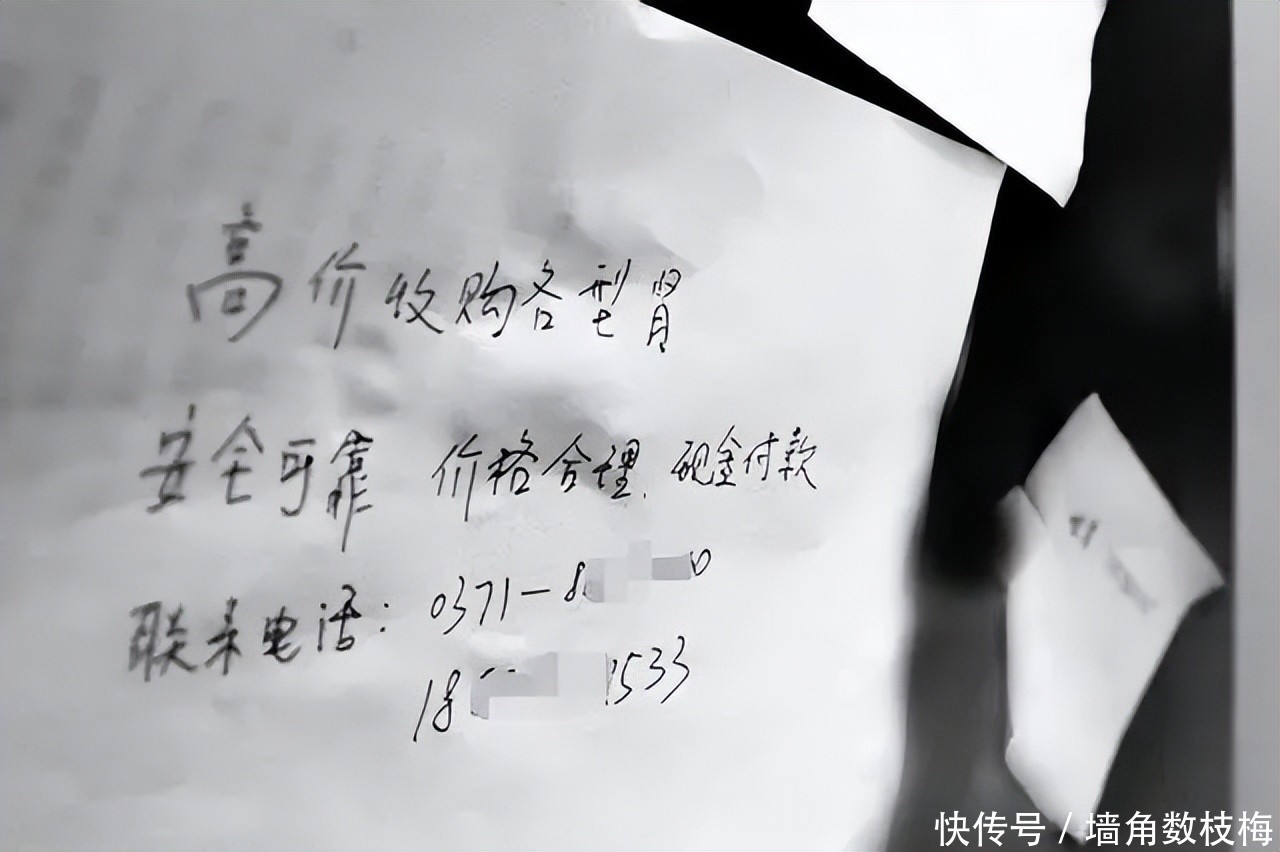 高价收购各型肾
安全可靠 价格合理、现金付款
联系电话：0371-8 0
18 1533
快传号 / 墙角数枝梅